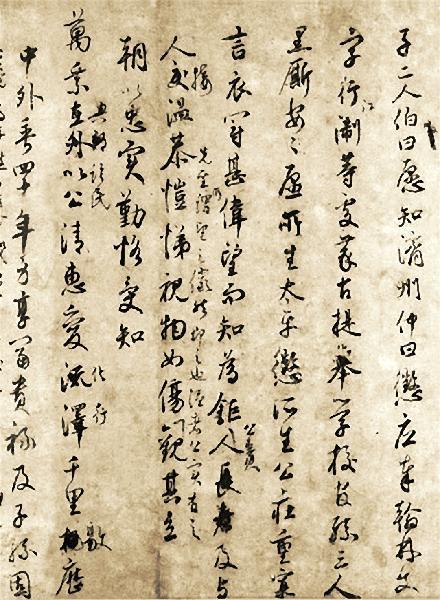 子二人伯曰愿知濟州仲曰懋應奉翰林文
字行江淛等處蒙古提舉學校女孫三人
安之愿所生太平懋所生公在重
言衣冠甚偉望而知為鉅人長者及与
人交溫恭愷悌視物如傷觀其立
朝以忠實勤恪受知
萬乘在外以公清惠愛流澤千里敭歷
中外垂四十年方享富貴祿及子孫固